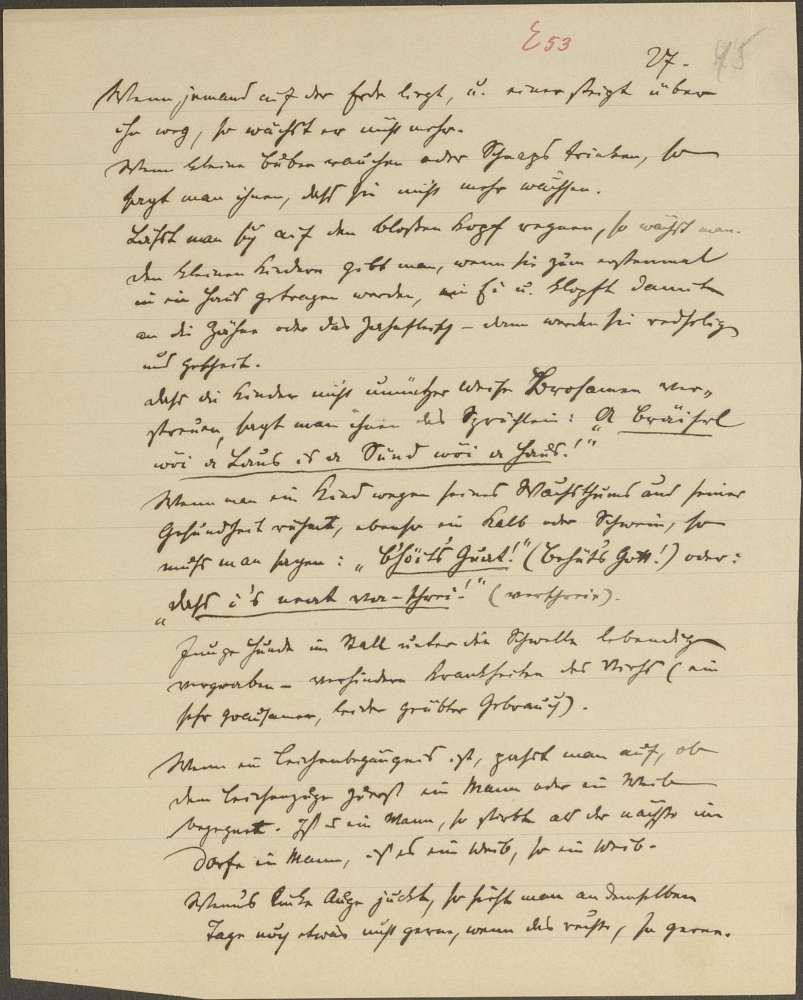 E 53
27.
45
Wenn jemand auf der Erde liegt, u. einer steigt über
ihn weg, so wächst er nicht mehr.
Wenn kleine Buben rauchen oder Schnaps trinken, so
sagt man ihnen, daß sie nicht mehr wachsen.
Läßt man sich auf den bloßen Kopf regnen, so wächst man.
Den kleinen Kindern gibt man, wenn sie zum erstenmal
in ein Haus getragen werden, ein Ei u. klopft damit
an die Zähne oder das Zahnfleisch – dann werden sie redselig
und gescheit.
Daß die Kinder nicht unnützer Weise Brosamen ver-
streuen, sagt man ihnen das Sprüchlein: „A Bräiserl
wöi a Laus is a Sünd wöi a Haus!"
Wenn man ein Kind wegen seines Wachsthums und seiner
Gesundheit rühmt, ebenso ein Kalb oder Schwein, so
muß man sagen: „B'höit's Guat!" (Behüt's Gott!) oder:
„daß i's neat va-schrei!" (verschreie).
Junge Hunde im Stall unter die Schwelle lebendig
vergraben – verhindern Krankheiten des Viehs (ein
sehr grausamer, leider geübter Gebrauch).
Wenn ein Leichenbegängnis ist, paßt man auf, ob
dem Leichenzuge zuerst ein Mann oder ein Weib
begegnet. Ist es ein Mann, so stirbt als der nächste im
Dorfe ein Mann, ist es ein Weib, so ein Weib.
Wenn's linke Auge juckt, so sieht man an demselben
Tage noch etwas nicht gerne, wenn das rechte, so gerne.